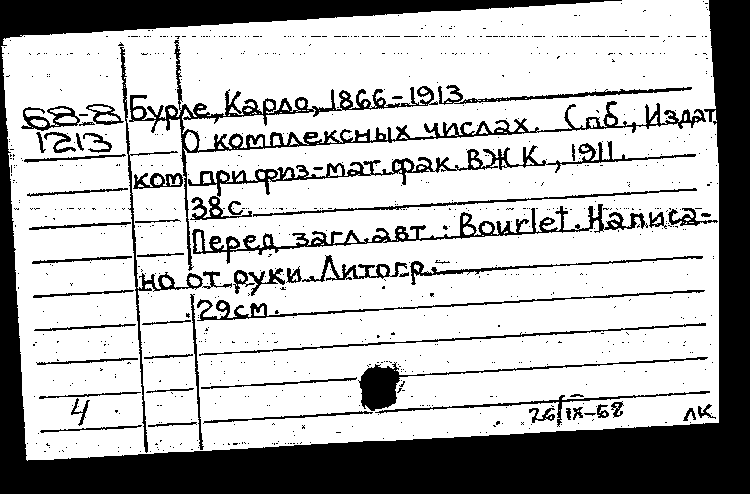 68-8
1213
Бурле, Карло, 1866-1913
О комплексных числах. Спб., Издат.
ком. при физ-мат. фак. ВЖК., 1911.
38 с.
Перед загл. авт.: Bourlet. Написа-
но от руки. Литогр.-
29 см.
4
26/IX-68
ЛК